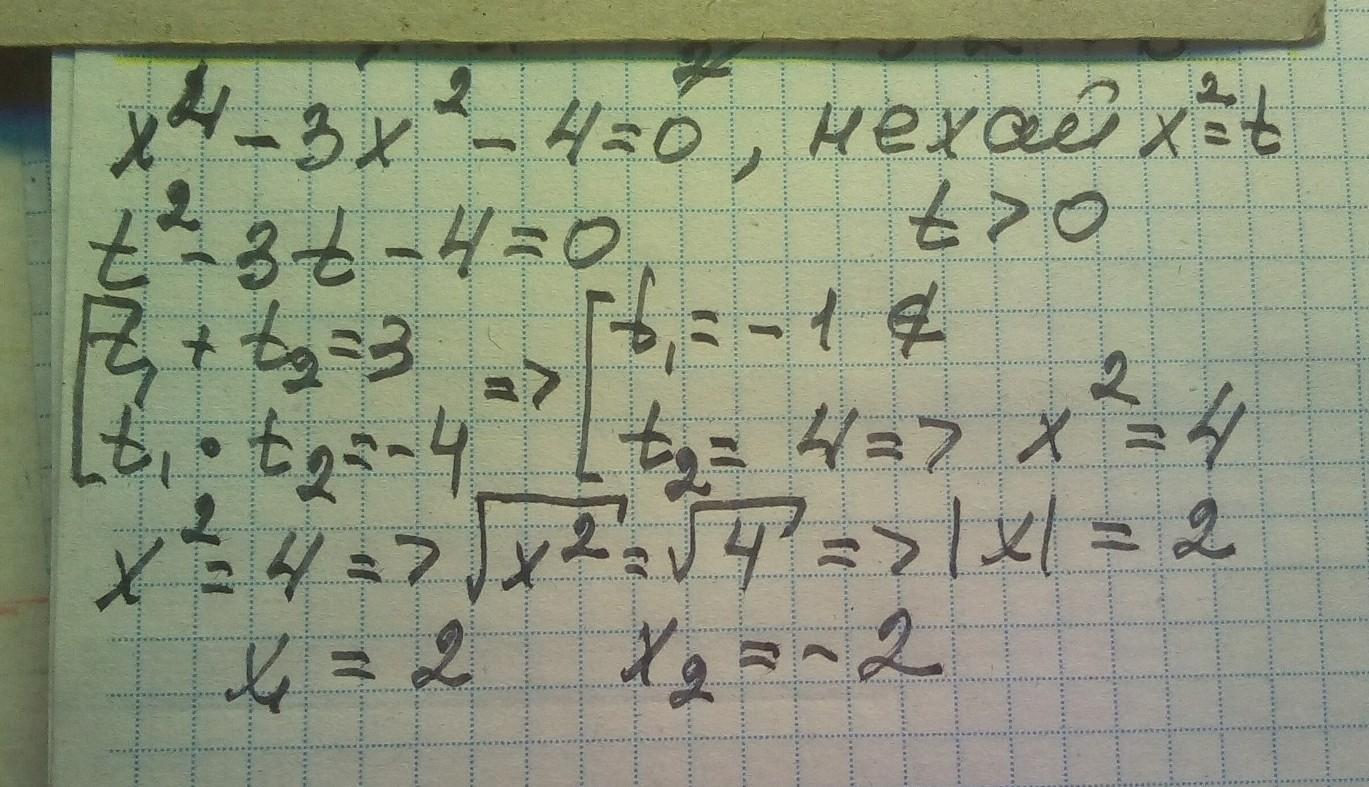 x⁴ - 3x² - 4 = 0, нехай x² = t
t² - 3t - 4 = 0 t > 0
[t₁ + t₂ = 3 => [t₁ = -1 ∉
t₁ · t₂ = -4 t₂ = 4 => x² = 4
x² = 4 => √x² = √4 => |x| = 2
x₁ = 2 x₂ = -2